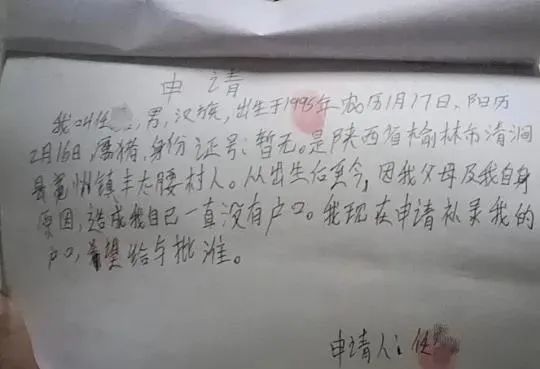 申请
我叫任 ,男,汉族,出生于1995年农历1月17日、阳历
2月16日,属猪,身份证号:暂无。是陕西省榆林市清涧
县 州镇丰太腰村人。从出生后至今,因我父母及我自身
原因,造成我自己一直没有户口。我现在申请补录我的
户口,希望给予批准。
申请人:任